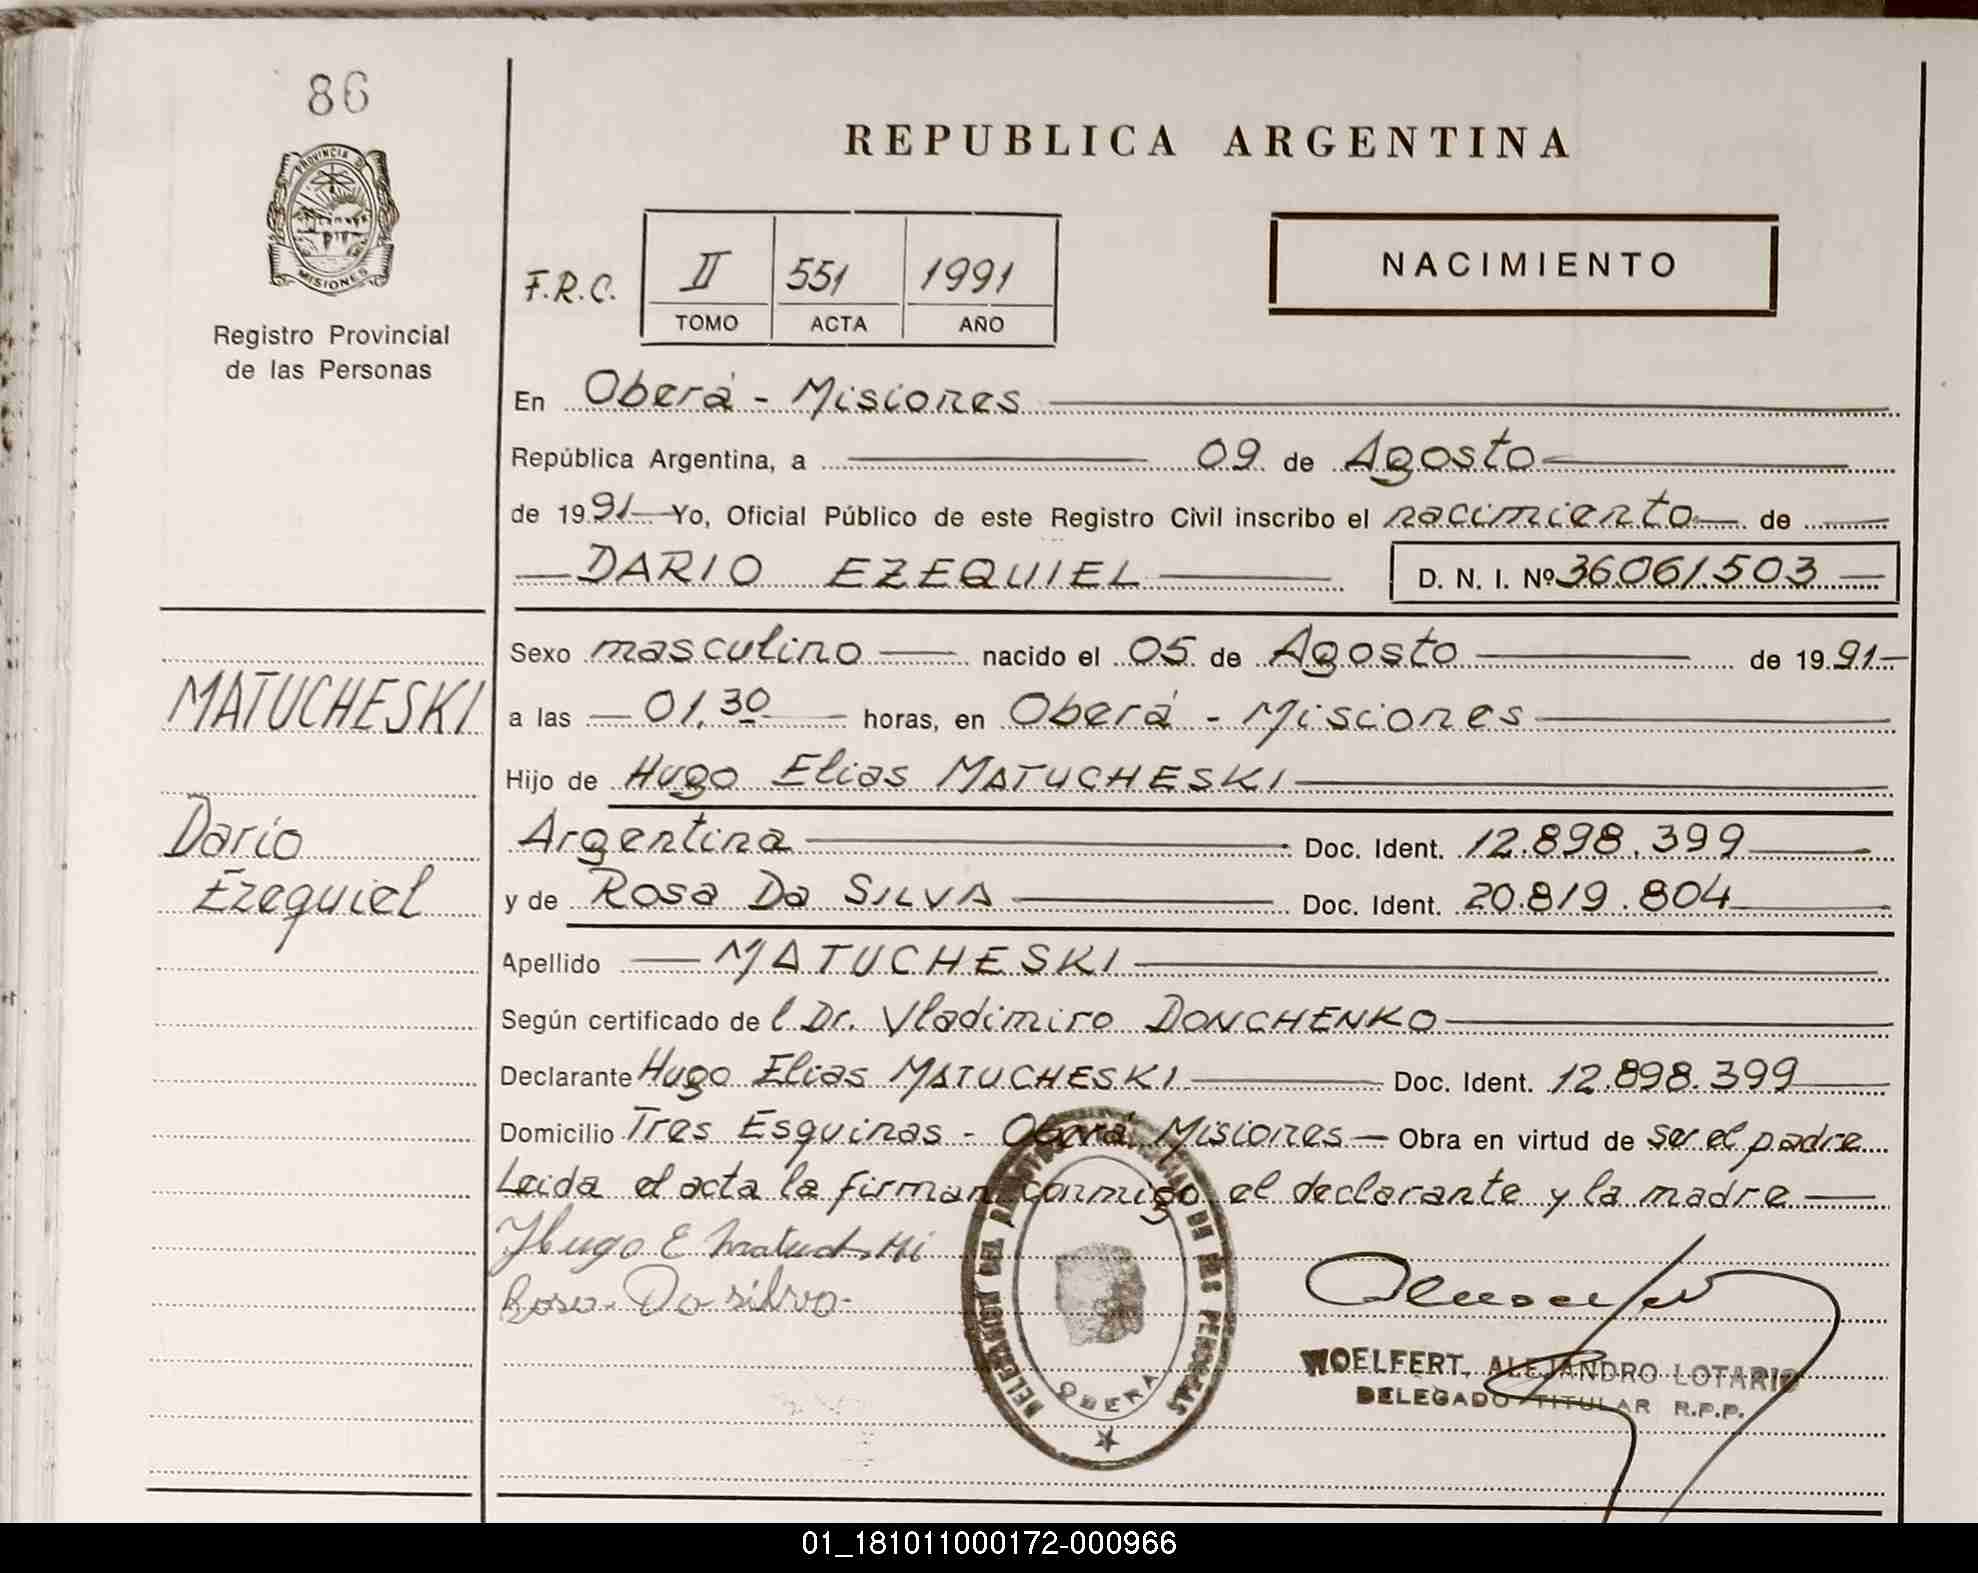 86
PROVINCIA DE
MISIONES
Registro Provincial
de las Personas
REPUBLICA ARGENTINA
F.R.C. II 551 1991
TOMO ACTA AÑO
NACIMIENTO
En Oberá - Misiones
República Argentina, a 09 de Agosto
de 1991 Yo, Oficial Público de este Registro Civil inscribo el nacimiento de
DARIO EZEQUIEL D. N. I. Nº 36061.503
Sexo masculino nacido el 05 de Agosto de 1991
a las 01,30 horas, en Oberá - Misiones
Hijo de Hugo Elias MATUCHESKI
Argentina Doc. Ident. 12.898.399
y de Rosa Da SILVA Doc. Ident. 20.819.804
Apellido MATUCHESKI
Según certificado de l Dr. Vladimiro DONCHENKO
Declarante Hugo Elias MATUCHESKI Doc. Ident. 12.898.399
Domicilio Tres Esquinas - Oberá Misiones Obra en virtud de ser el padre
Leida el acta la firman conmigo el declarante y la madre
MATUCHESKI
Dario
Ezequiel
Hugo E Matucheski
Rosa Da silva
DELEGACION DEL REGISTRO PROVINCIAL DE LAS PERSONAS
OBERA
WOELFERT, ALEJANDRO LOTARIO
DELEGADO TITULAR R.P.P.
01_181011000172-000966